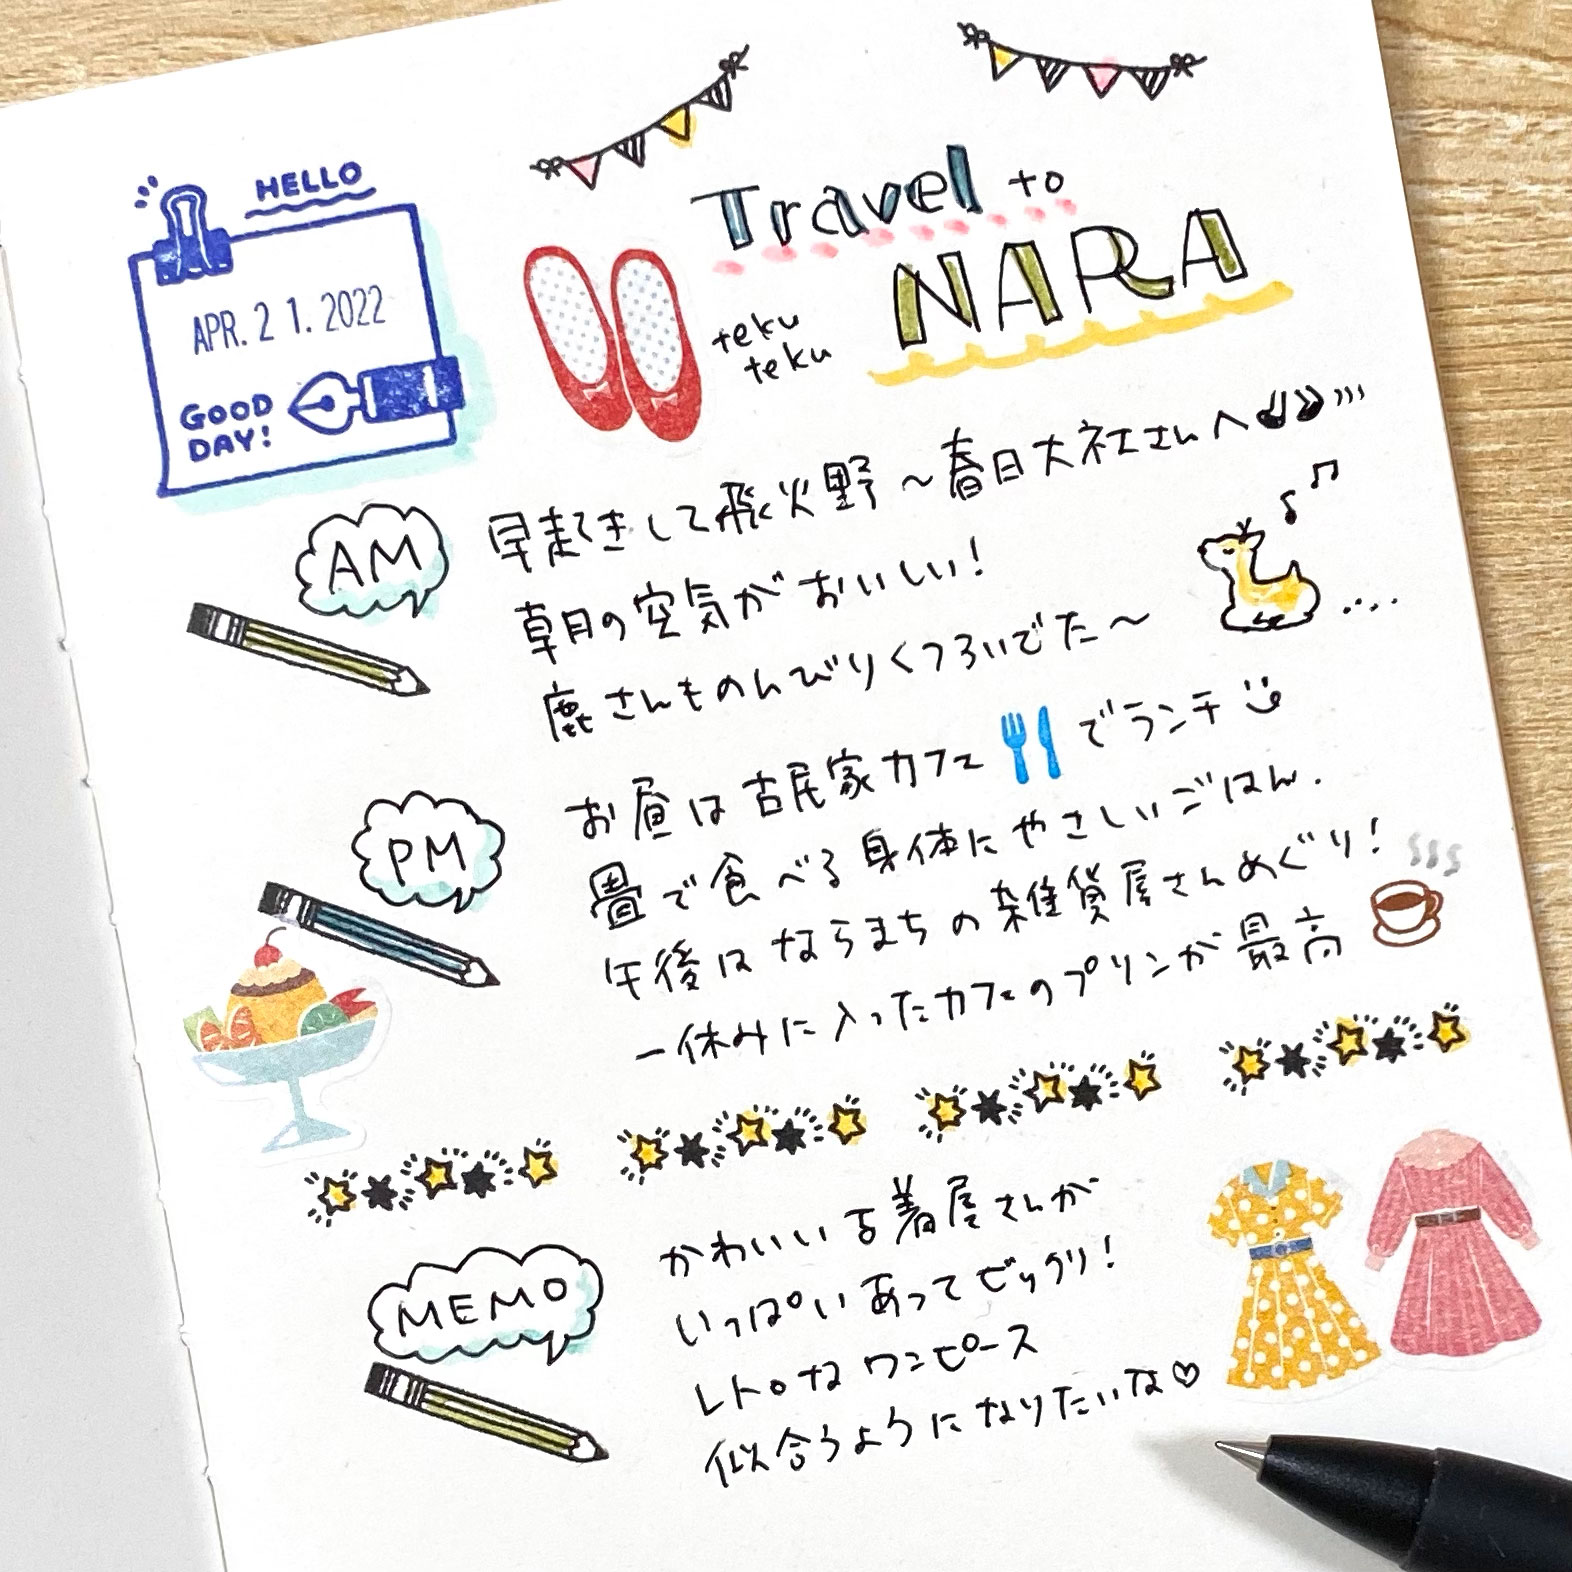 HELLO
APR. 21. 2022
GOOD
DAY!
Travel to
NARA
teku
teku
AM
早起きして飛火野～春日大社さんへ♩♪
朝の空気がおいしい！
鹿さんものんびりくつろいでた～
PM
お昼は古民家カフェ🍴でランチ
畳で食べる身体にやさしいごはん.
午後はならまちの雑貨屋さんめぐり！
一休みに入ったカフェのプリンが最高
MEMO
かわいい古着屋さんが
いっぱいあってビックリ！
レトロなワンピース
似合うようになりたいな♡